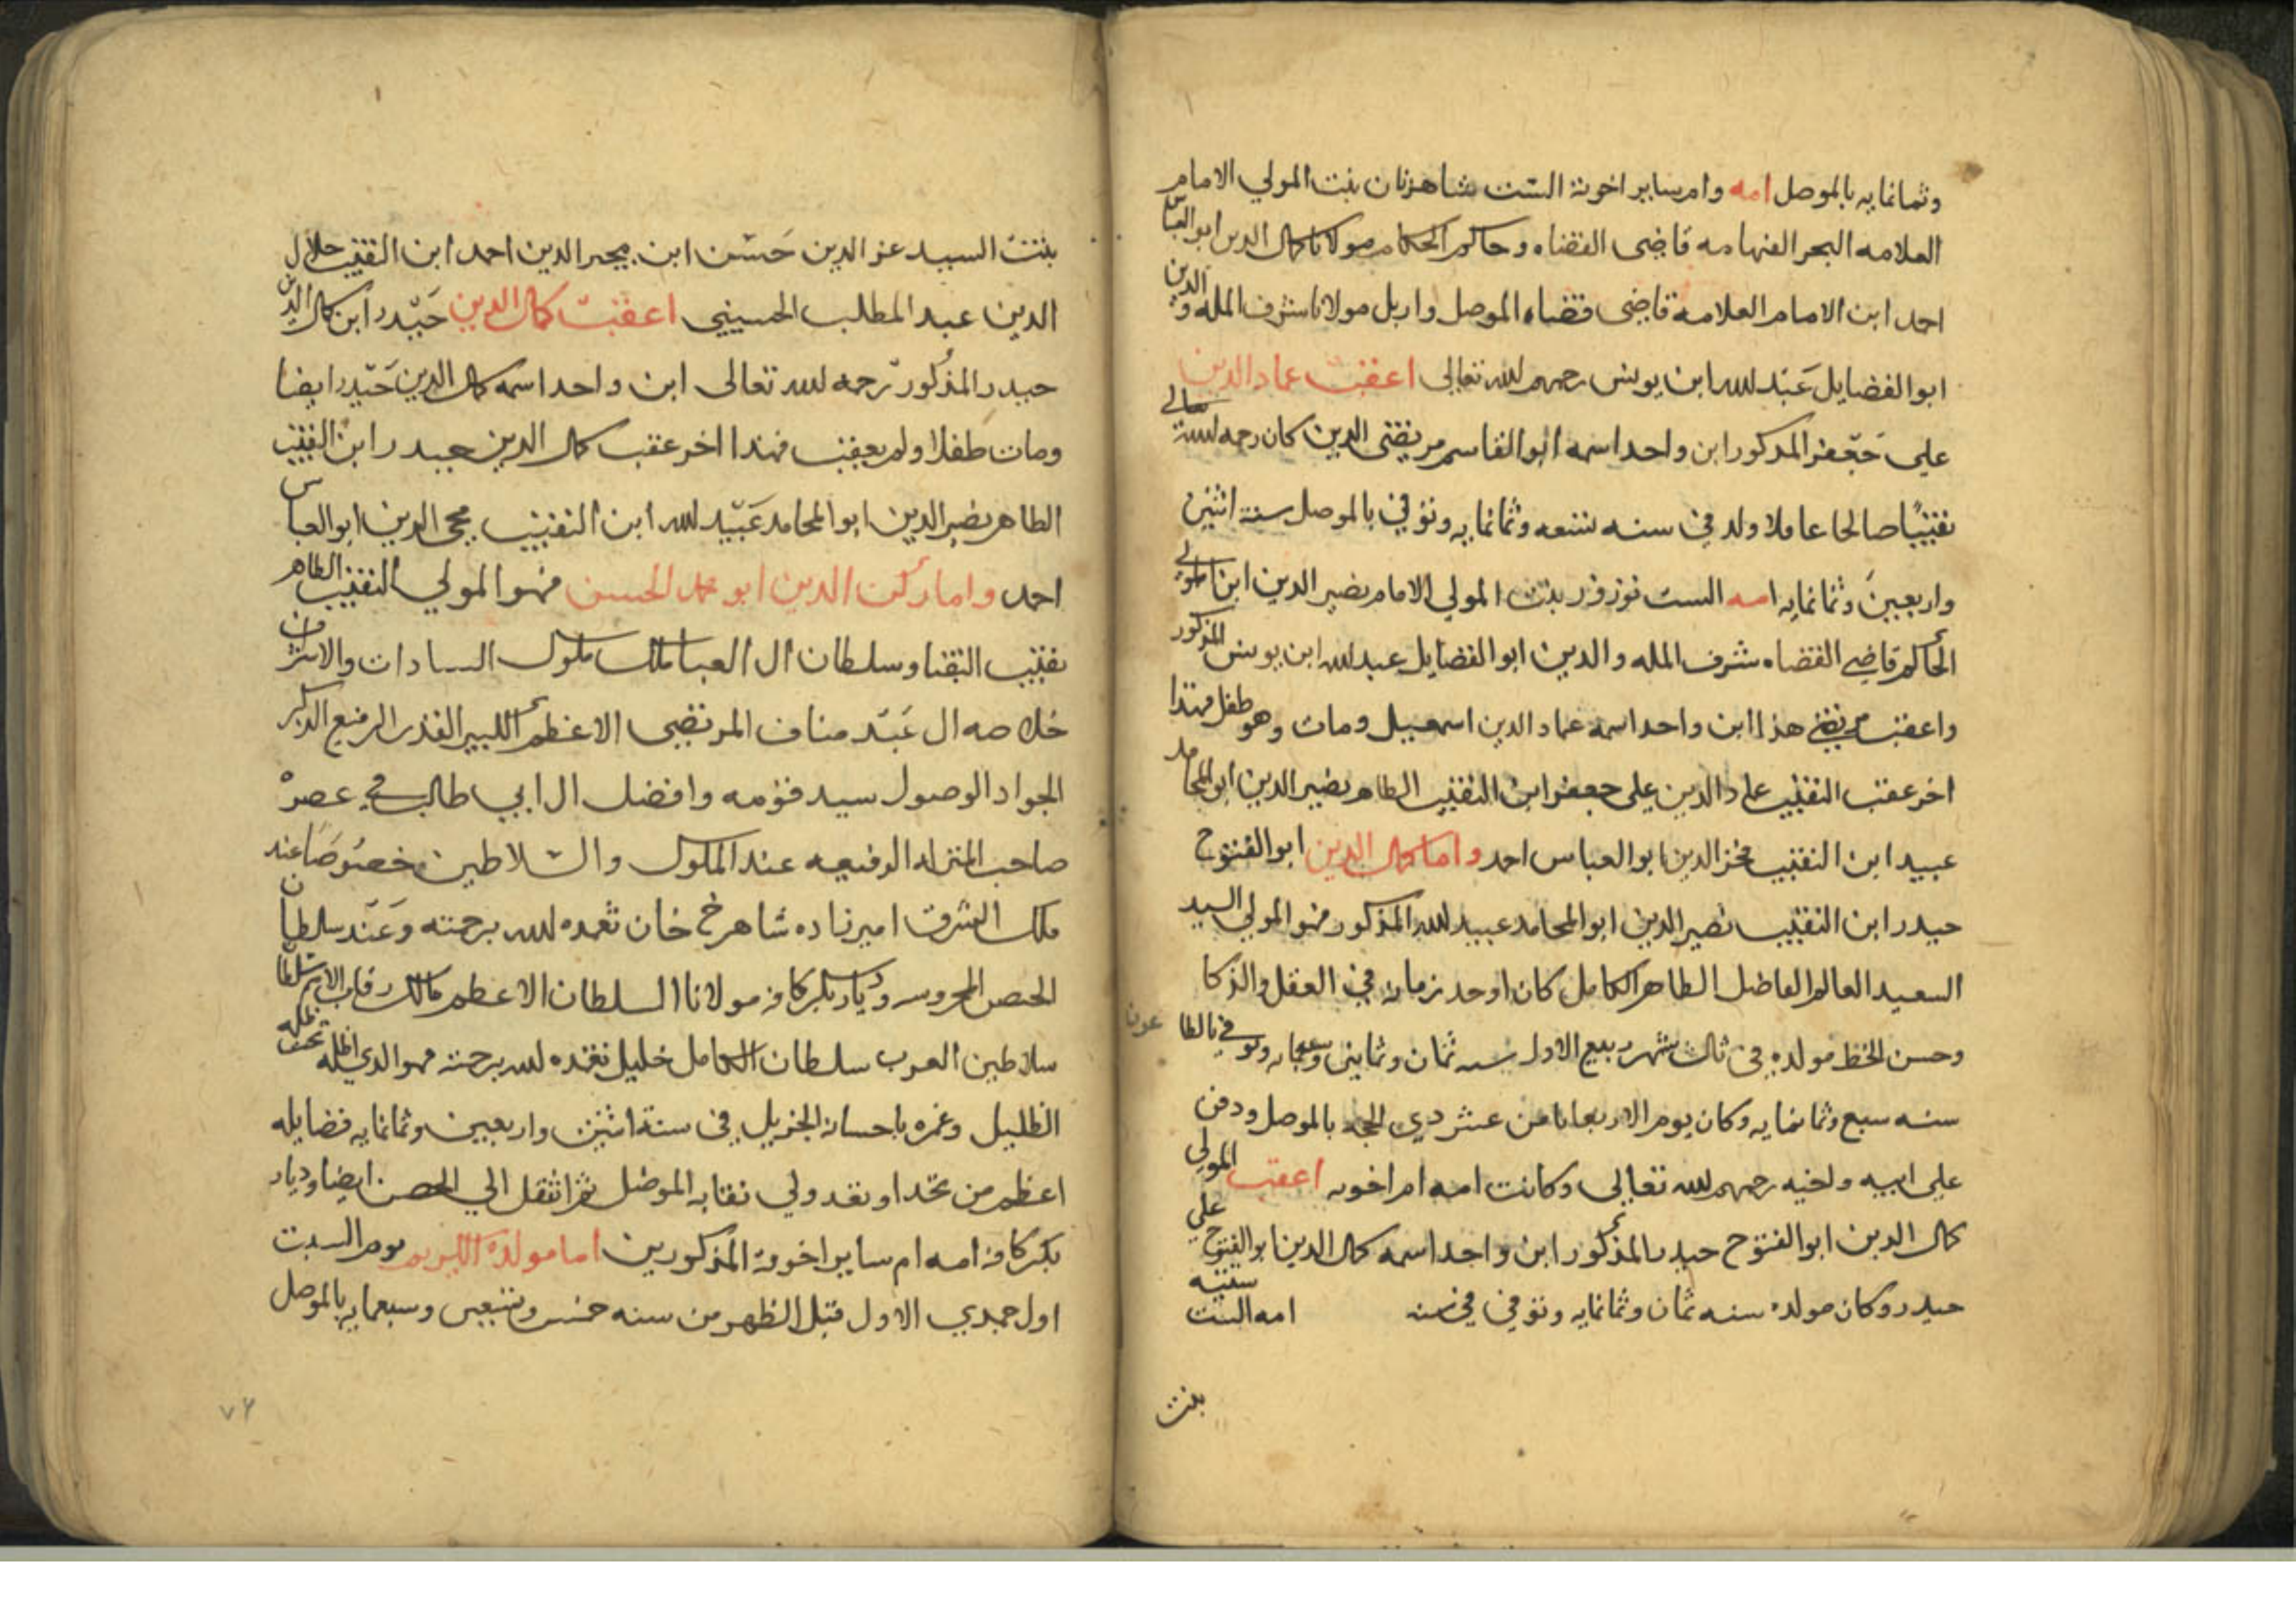 وثمانمايه بالموصل امه وام ساير اخوته الست شاهزنان بنت المولي الامام
العلامه البحر الفهامه قاضى القضاه وحاكم الحكام مولانا كمال الدين ابو العباس
احمد ابن الامام العلامه قاضى قضاه الموصل واربل مولانا شرف المله والدين
ابو الفضايل عَبْد الله ابن يونس رحمهم الله تعالى اعقبَ عماد الدين
علي جَعْفر المذكور ابن واحد اسمه ابو القاسم مرتضى الدين كان رحمه الله تعالي
نقيبًا صالحا عاملا ولد في سنه تسعه وثمانمايه وتوفي بالموصل سنة اثنين
واربعين وثمانمايه امه الست بنت المولي الامام نصير الدين ابن
الحاكم قاضي القضاه شرف المله والدين ابو الفضايل عبد الله ابن يونس المذكور
واعقب مرتضى هذا ابن واحد اسمه عماد الدين اسمعيل ومات وهو طفل فهذا
اخر عقب النقيب عماد الدين علي جعفر ابن النقيب الطاهر نصير الدين ابو المحامد
عبيد ابن النقيب فخر الدين ابو العباس احمد واما كمال الدين ابو الفتوح
حيدر ابن النقيب نصير الدين ابو المحامد عبيد الله المذكور فهو المولي السيد
السعيد العالم الفاضل الطاهر الكامل كان اوحد زمانه في العقل والذكا
وحسن الخط مولده في ثالث شهر ربيع الاول سنه ثمان وثمانين وسبعمايه وتوفي بالطاعون
سنه سبع وثمانمايه وكان يوم الاربعا ثامن عشر ذي الحجه بالموصل ودفن
على ابيه واخيه رحمهم الله تعالى وكانت امه ام اخوته اعقب المولي
كمال الدين ابو الفتوح حيدر المذكور ابن واحد اسمه كمال الدين ابو الفتوح علي
حيدر وكان مولده سنه ثمان وثمانمايه وتوفي في سنه امه الست ستيته
بنت
بنتت السيد عز الدين حَسَن ابن مجير الدين احمد ابن النقيب جلال
الدين عبد المطلب الحسيني اعقبَ كمال الدين حَيْدر ابن كمال الدين
حيدر المذكور رحمه الله تعالى ابن واحد اسمه كمال الدين حَيْدر ايضا
ومات طفلا ولم يعقب فهذا اخر عقب كمال الدين حيدر ابن النقيب
الطاهر نصير الدين ابو المحامد عَبيْد الله ابن النقيب محيى الدين ابو العباس
احمد واما ركن الدين ابو محمد الحسن فهو المولي النقيب الطاهر
نقيب النقبا وسلطان ال العبا ملك ملوك السادات والاشراف
خلاصه ال عَبْد مناف المرتضى الاعظم الكبير القدر الرفيع الذكر
الجواد الوصول سيد قومه وافضل ال ابي طالب في عصره
صاحب المنزله الرفيعه عند الملوك والسلاطين وخصُوصَا عند
ملك الشرق اميرزاده شاهرخ خان تغمده الله برحمته وَعَنْد سلطان
الحصن المحروسه وديار بكر كافه مولانا السلطان الاعظم مالك رقاب الامم سلطان
سلاطين العرب سلطان الكامل خليل تغمده الله برحمته فهو الذي اظله تحت ظله
الظليل وغمره باحسانه الجزيل في سنة اثنين واربعين وثمانمايه فضايله
اعظم من تحد او تعد ولي نقابه الموصل ثم انتقل الي الحصن ايضا وديار
بكر كافه امه ام ساير اخوته المذكورين اما مولده الكريم يوم السبت
اول جمدي الاول قبل الظهر من سنه خمس وتسعين وسبعمايه بالموصل
٧٦